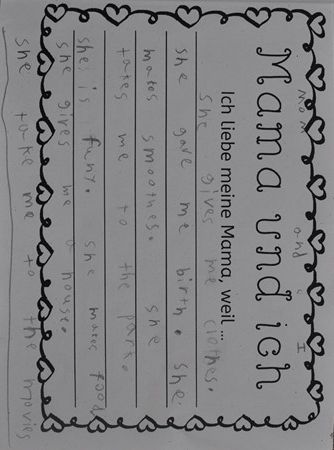 Mama und ich
Mom and I
Ich liebe meine Mama, weil ...
she gives me clothes.
she gave me birth. she
makes smoothes. she
takes me to the park.
she is funy. she makes food
she gives me a house.
she take me to the movies